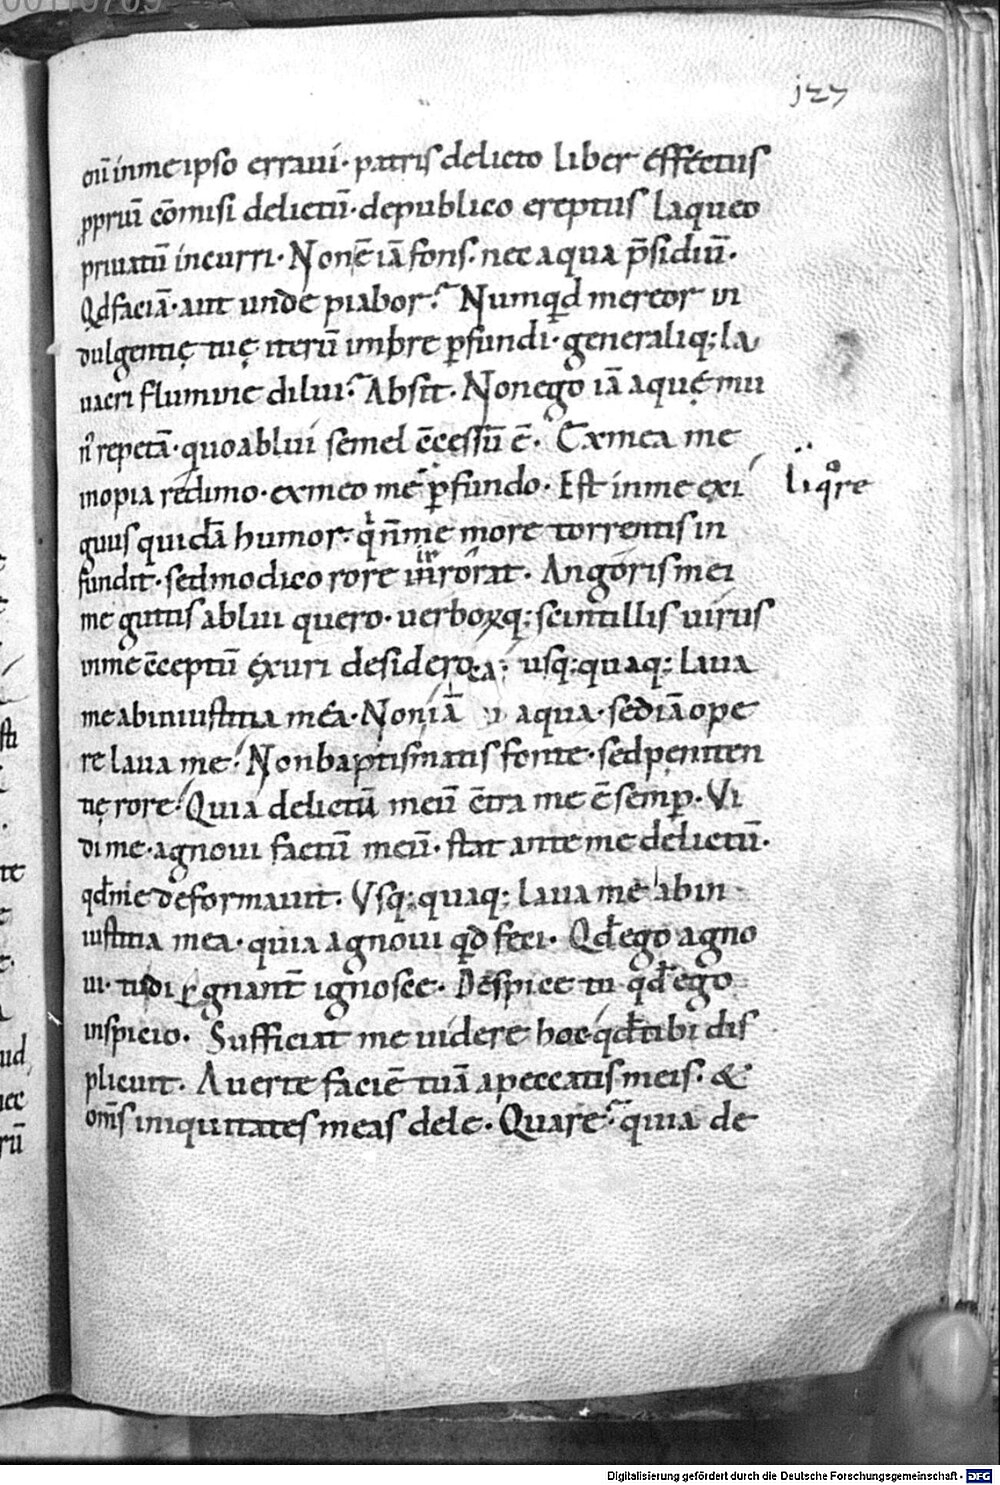 127
cū in me ipso erraui · patris delicto liber effectus
ꝓpriū cōmisi delictū · de publico ereptus laqueo
priuatū incurri · Non ē iā fons · nec aqua p̄sidiū ·
Qd faciā · aut unde piabor? Numqd mereor in
dulgentię tuę iterū imbre ꝑfundi · generaliq; la
uacri flumine dilui? Absit · Non ego iā aquę mu
repetā · quo ablui semel c̄cessū ē · Ex mea me
inopia redimo · ex meo me ꝑfundo · Est in me exi
liqͦre
guus quidā humor · q̇ n̄ me more torrentis in
fundit · sed modico rore irrorat · Angoris mei
me guttis ablui quero · uerboꝝq; scintillis uirus
in me c̄ceptū exuri desidero · usq; quaq; laua
me ab iniustitia mea · Non iā aqua · sed iā ope
re laua me? Non baptismatis fonte · sed peniten
tię rore? Quia delictū meū c̄tra me ē semꝑ · Vi
di me · agnoui factū meū · stat ante me delictū ·
qd me deformauit · Vsq; quaq; laua me ab in
iustitia mea · quia agnoui qd feci · Qd ego agno
ui · tu ignosce · Despice tu qd ego
inspicio · Sufficiat me uidere hoc qd tibi dis
plicuit · Auerte faciē tuā a peccatis meis · &
om̄s iniquitates meas dele · Quare? quia de
Digitalisierung gefördert durch die Deutsche Forschungsgemeinschaft - DFG